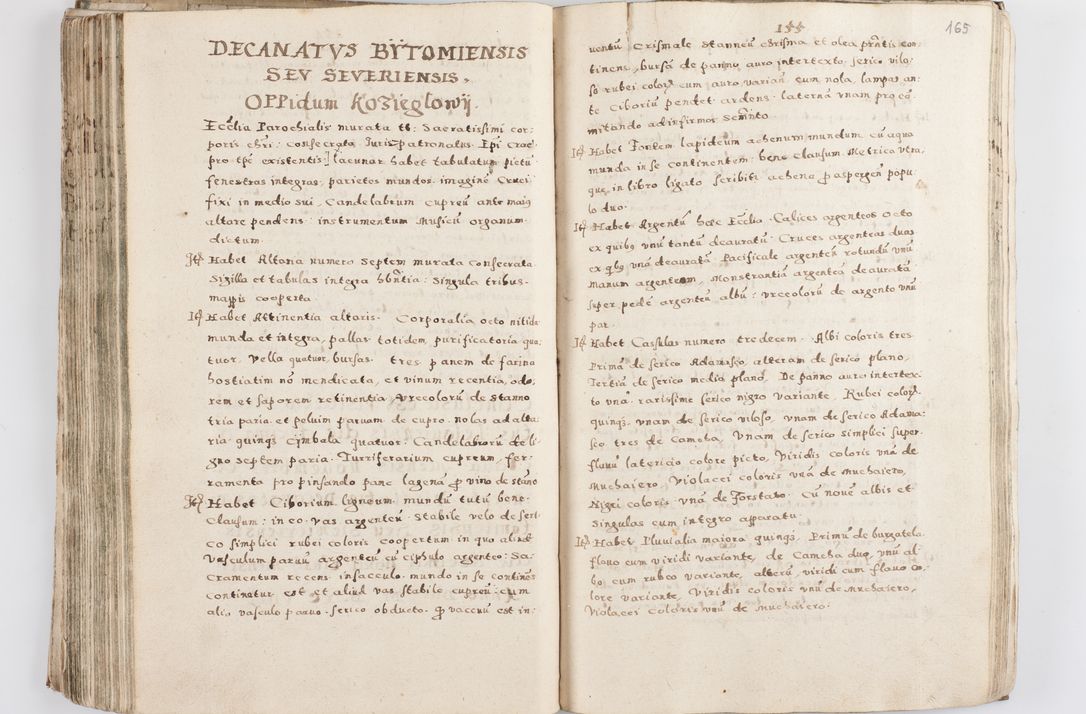 DECANATVS BŸTOMIENSIS
SEV SEVERIENSIS.
OPPidum Kozieglowÿ.
Ecclia Parochialis murata tt: Sacratissimi cor:
poris chri: consecrata Juris patronatus. Epi Crac
pro tpe existentis] lacunar habet tabulatum pictu
fenestras integras. parietes mundos. imagine Cruci
fixi in medio sui. Candelabrum cupreu ante maius
altare pendens: instrumentum Musicu organum
dictum.
It Habet Altaria numero septem murata consecrata
Sigilla et tabulas integra hbntia: singula tribus
mappis cooperta
It Habet Attinentia altaris. Corporalia octo nitida
munda et integra, pallas totidem, purificatoria qua:
tuor, Vella quatuor, bursas. tres panem de farina
hostiatim no mendicata, et vinum recentia, odo:
rem et saporem retinentia Vrecoloru de Stanno
tria paria et peluim paruam de cupro. nolas ad alta:
ria quinqz Cÿmbala quatuor. Candelabroru de li
gno septem paria. Turriferarium cupreum. fer:
ramenta pro pinsando pane lagena p vino de stano
It Habet Ciborium ligneum mundu tutu bene
Clausum: in eo vas argenteu stabile velo de seri
co simplici rubei coloris coopertum in quo aliud
Vasculum paruu argenteu cu ciphulo argenteo: Sa:
cramentum recens in sacculo mundo in se contines
continetur est et aliud vas stabile cupreu cum
alio vasculo paruo. serico obducto. p vaccru est in:
155
165
uentu Crismale Stanneu Crisma et olea prntis con:
tinens, bursa de panno auro intertexto, serico vilo:
so rubei colorz cum auro varian cum nola, lampas an:
te Ciborium pendet ardens. laterna vnam pro co
mitando ad infirmos Scrmnto
It Habet Fontem lapideum achenum mundum cu aqua
munda in se continentem: bene Clausum. Metrica vtra
que in libro ligato scribiti achena p aspergen popu
lo duo.
It Habet Argentu haec Ecclia. Calices argenteos octo
ex quibus vnu tantu deauratu. Cruces argenteas duas
ex qbus vna deaurata. Pacificale argenteu rotundu vnu
Manum argenteam, Monstrantia argentea deaurata
super pede argenteu albu: vrceoloru de argento vnu
par.
It Habet Casulas numero tredecem. Albi coloris tres
Prima de serico Adamasco, alteram de serico plano,
Tertia de serico medio plano. De panno auro intertex:
to vna. rarissime serico nigro variante. Rubei colorz
quinqz. vnam de serico viloso, vnam de serico Adama:
sco tres de Cameta, Vnam de serico simplici super.
flauu latericio colore picto, Viridis coloris vna de
Muchaiero, Violacei coloris vna de Muchaiero,
Nigri coloris vna de Forstato. Cu noue albis et
singulas cum integro apparatu.
It Habet Pluuialia maiora quinqz. Primu de burgatela
flauo cum viridi variante, de Cameha duo, vnu al
bo, cum rubeo variante, alteru viridi cum flauo co:
lore variante, Viridis coloris vnu de Muchaiero,
Violacei coloris vnu de Muchaiero.